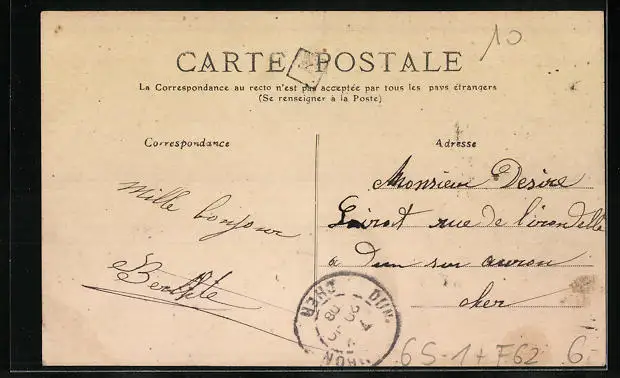 10
CARTE POSTALE
La Correspondance au recto n'est pas acceptée par tous les pays étrangers
(Se renseigner à la Poste)
Correspondance
Adresse
Mille bonjour
Berthe
Monsieur Desire
rue de l'irondelle
a Dun sur auron
cher
DUN
CHER
6S-1+F62 6.-